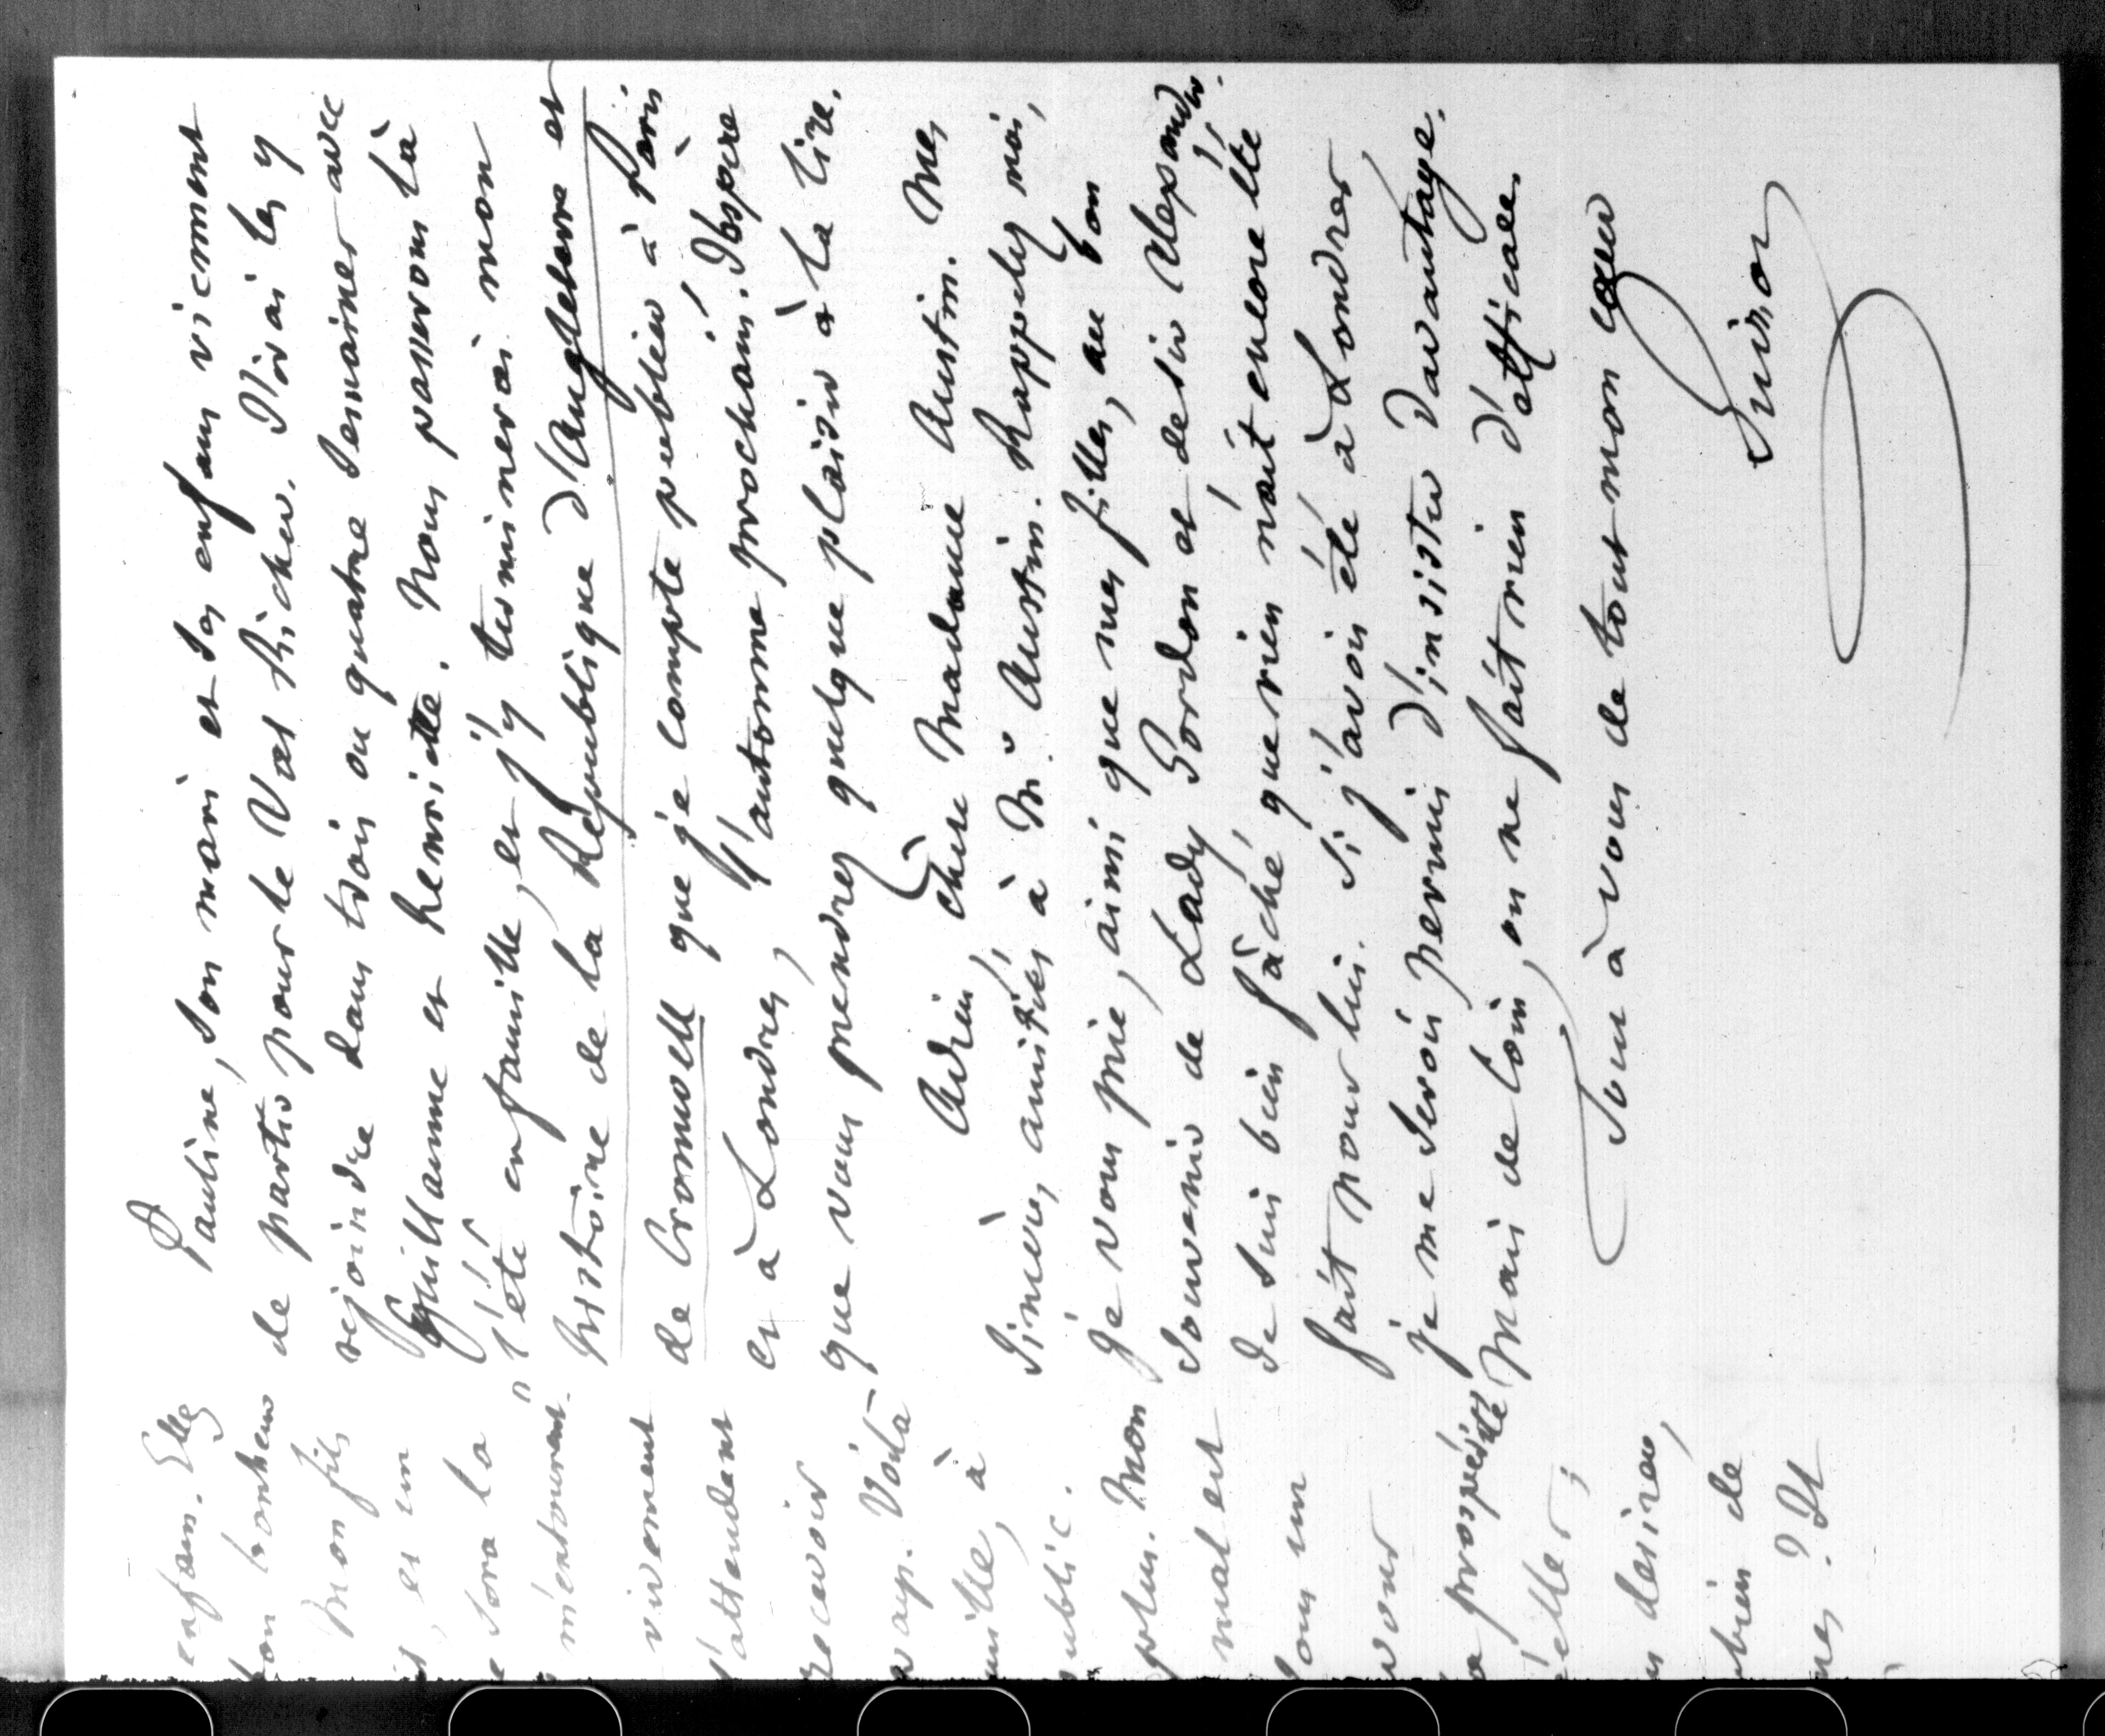 enfans. Elle
son bonheur
mon fils
, et un
e sera la
m'entourent
vivement
s'attendent
recevoir
Voilà
mille, à
public.
plus. Mon
mal est
un
vous
la prospérité
elles ;
desirer,
bien de
? Il
Pauline, son mari et ses enfans viennent
de partir pour le Val Richer. J'irai les y
rejoindre dans trois ou quatre semaines avec
Guillaume et henriette. Nous passerons là
l'été en famille, et j'y terminerai mon
histoire de la République d'Angleterre et
de Cromwell que je compte publier à Paris
et à Londres, l'automne prochain. J'espère
que vous prendrez quelque plaisir à la lire.
Adieu, chere Madame Austin. Mes
sincères amitiés à Mr Austin. Rappelez moi,
je vous prie, ainsi que mes filles, au bon
souvenir de Lady Gordon et de sir Alexander.
Je suis bien fâché que rien n'ait encore été
fait pour lui. Si j'avois été à Londres,
je me serois permis d'insister davantage.
Mais de loin, on ne fait rien d'efficace.
Tout à vous de tout mon coeur
Guizot